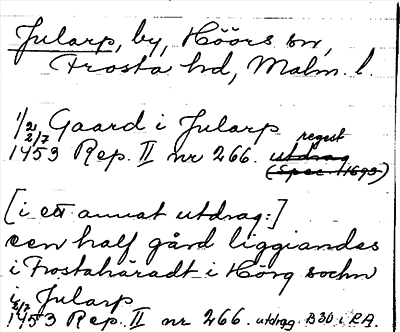 Jularp, by, Höörs sn,
Frosta hd, Malm. l.
1/2 Gaard i Jularp
2/7 1453 Rep. II nr 266. utdrag regest
(Spec. 1695)
[i ett annat utdrag:]
een half gård liggiandes
i Frostahäradt i Hörg sochn
i Jularp
2/7 1453 Rep. II nr 266. utdrag B30 i RA.